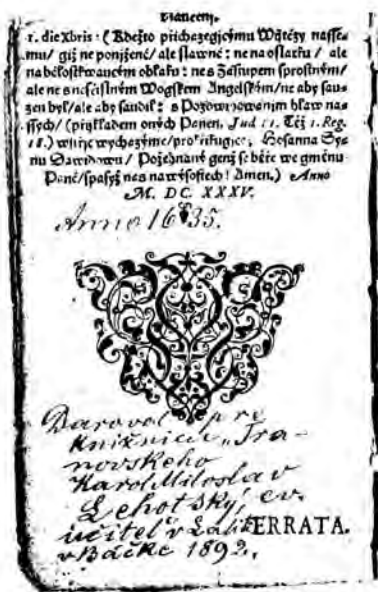 1. die Xbris: (Kdežto přicházegjcýmu Wjtězy nasse⸗
mu/ giž ne ponjžené/ ale slawné: ne na oslátku/ ale
na běloskwaucým oblaku: ne s Zástupem sprostným/
ale ne s nesčjslným Wogskem Angelským/ ne aby sau⸗
zen byl/ ale aby saudil: s Pozdwihowánjm hlaw na⸗
ssych/ (přjkladem oných Panen, Jud 11. Též 1. Reg.
18.) wstřjc wycházýme/ prokřikugjce, Hosanna Sy⸗
nu Dawidowu/ Požehnaný genž se běře we gménu
Páně/ spasyž nás na wýsostech! Amen.) Anno
M. DC. XXXV.
Anno 1635.
Daroval pre
knižnicu „Tra-
novského
Karol Miloslav
Lehotský, ev.
učiteľ v Laliť
v Báčke 1892.
ERRATA.